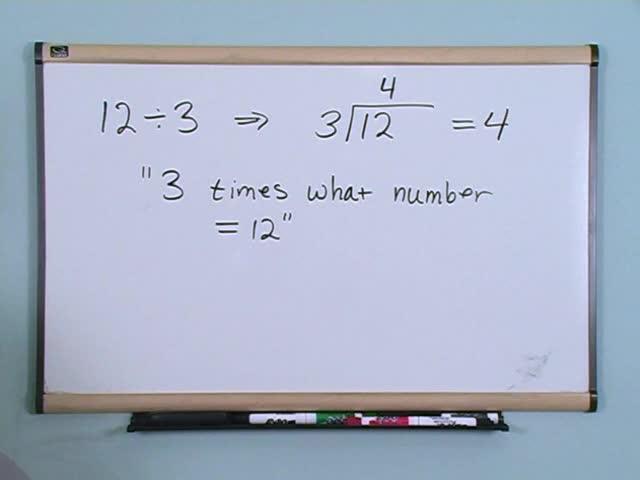 12 ÷ 3 ⇒ 3 ⟌ 12 = 4
4
"3 times what number
= 12"